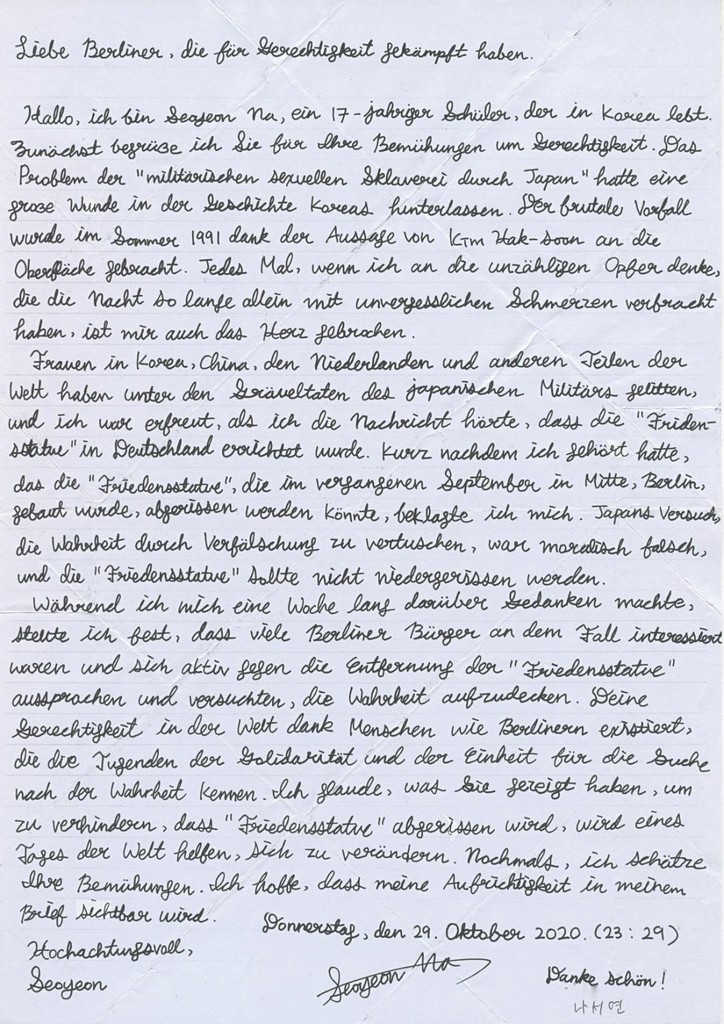 Liebe Berliner, die für Gerechtigkeit gekämpft haben.
Hallo, ich bin Seoyeon Na, ein 17-jahriger Schüler, der in Korea lebt.
Zunächst begrüße ich Sie für Ihre Bemühungen um Gerechtigkeit. Das
Problem der "militärischen sexuellen Sklaverei durch Japan" hatte eine
große Wunde in der Geschichte Koreas hinterlassen. Der brutale Vorfall
wurde im Sommer 1991 dank der Aussage von Kim Hak-soon an die
Oberfläche gebracht. Jedes Mal, wenn ich an die unzähligen Opfer denke,
die die Nacht so lange allein mit unvergesslichen Schmerzen verbracht
haben, ist mir auch das Herz gebrochen.
Frauen in Korea, China, den Niederlanden und anderen Teilen der
Welt haben unter den Gräueltaten des japanischen Militärs gelitten,
und ich war erfreut, als ich die Nachricht hörte, dass die "Friden-
sstatue" in Deutschland errichtet wurde. Kurz nachdem ich gehört hatte,
das die "Friedensstatue", die im vergangenen September in Mitte, Berlin,
gebaut wurde, abgerissen werden könnte, beklagte ich mich. Japans Versuch,
die Wahrheit durch Verfälschung zu vertuschen, war moralisch falsch,
und die "Friedensstatue" sollte nicht niedergerissen werden.
Während ich mich eine Woche lang darüber Gedanken machte,
stellte ich fest, dass viele Berliner Bürger an dem Fall interessiert
waren und sich aktiv gegen die Entfernung der "Friedensstatue"
aussprachen und versuchten, die Wahrheit aufzudecken. Deine
Gerechtigkeit in der Welt dank Menschen wie Berlinern existiert,
die die Tugenden der Solidarität und der Einheit für die Suche
nach der Wahrheit kennen. Ich glaude, was Sie gezeigt haben, um
zu verhindern, dass "Friedensstatue" abgerissen wird, wird eines
Tages der Welt helfen, sich zu verändern. Nochmals, ich schätze
Ihre Bemühungen. Ich hoffe, dass meine Aufrichtigkeit in meinem
Brief sichtbar wird.
Donnerstag, den 29. Oktober 2020. (23 : 29)
Hochachtungsvoll,
Seoyeon
Seoyeon Na
Danke schön!
나서연